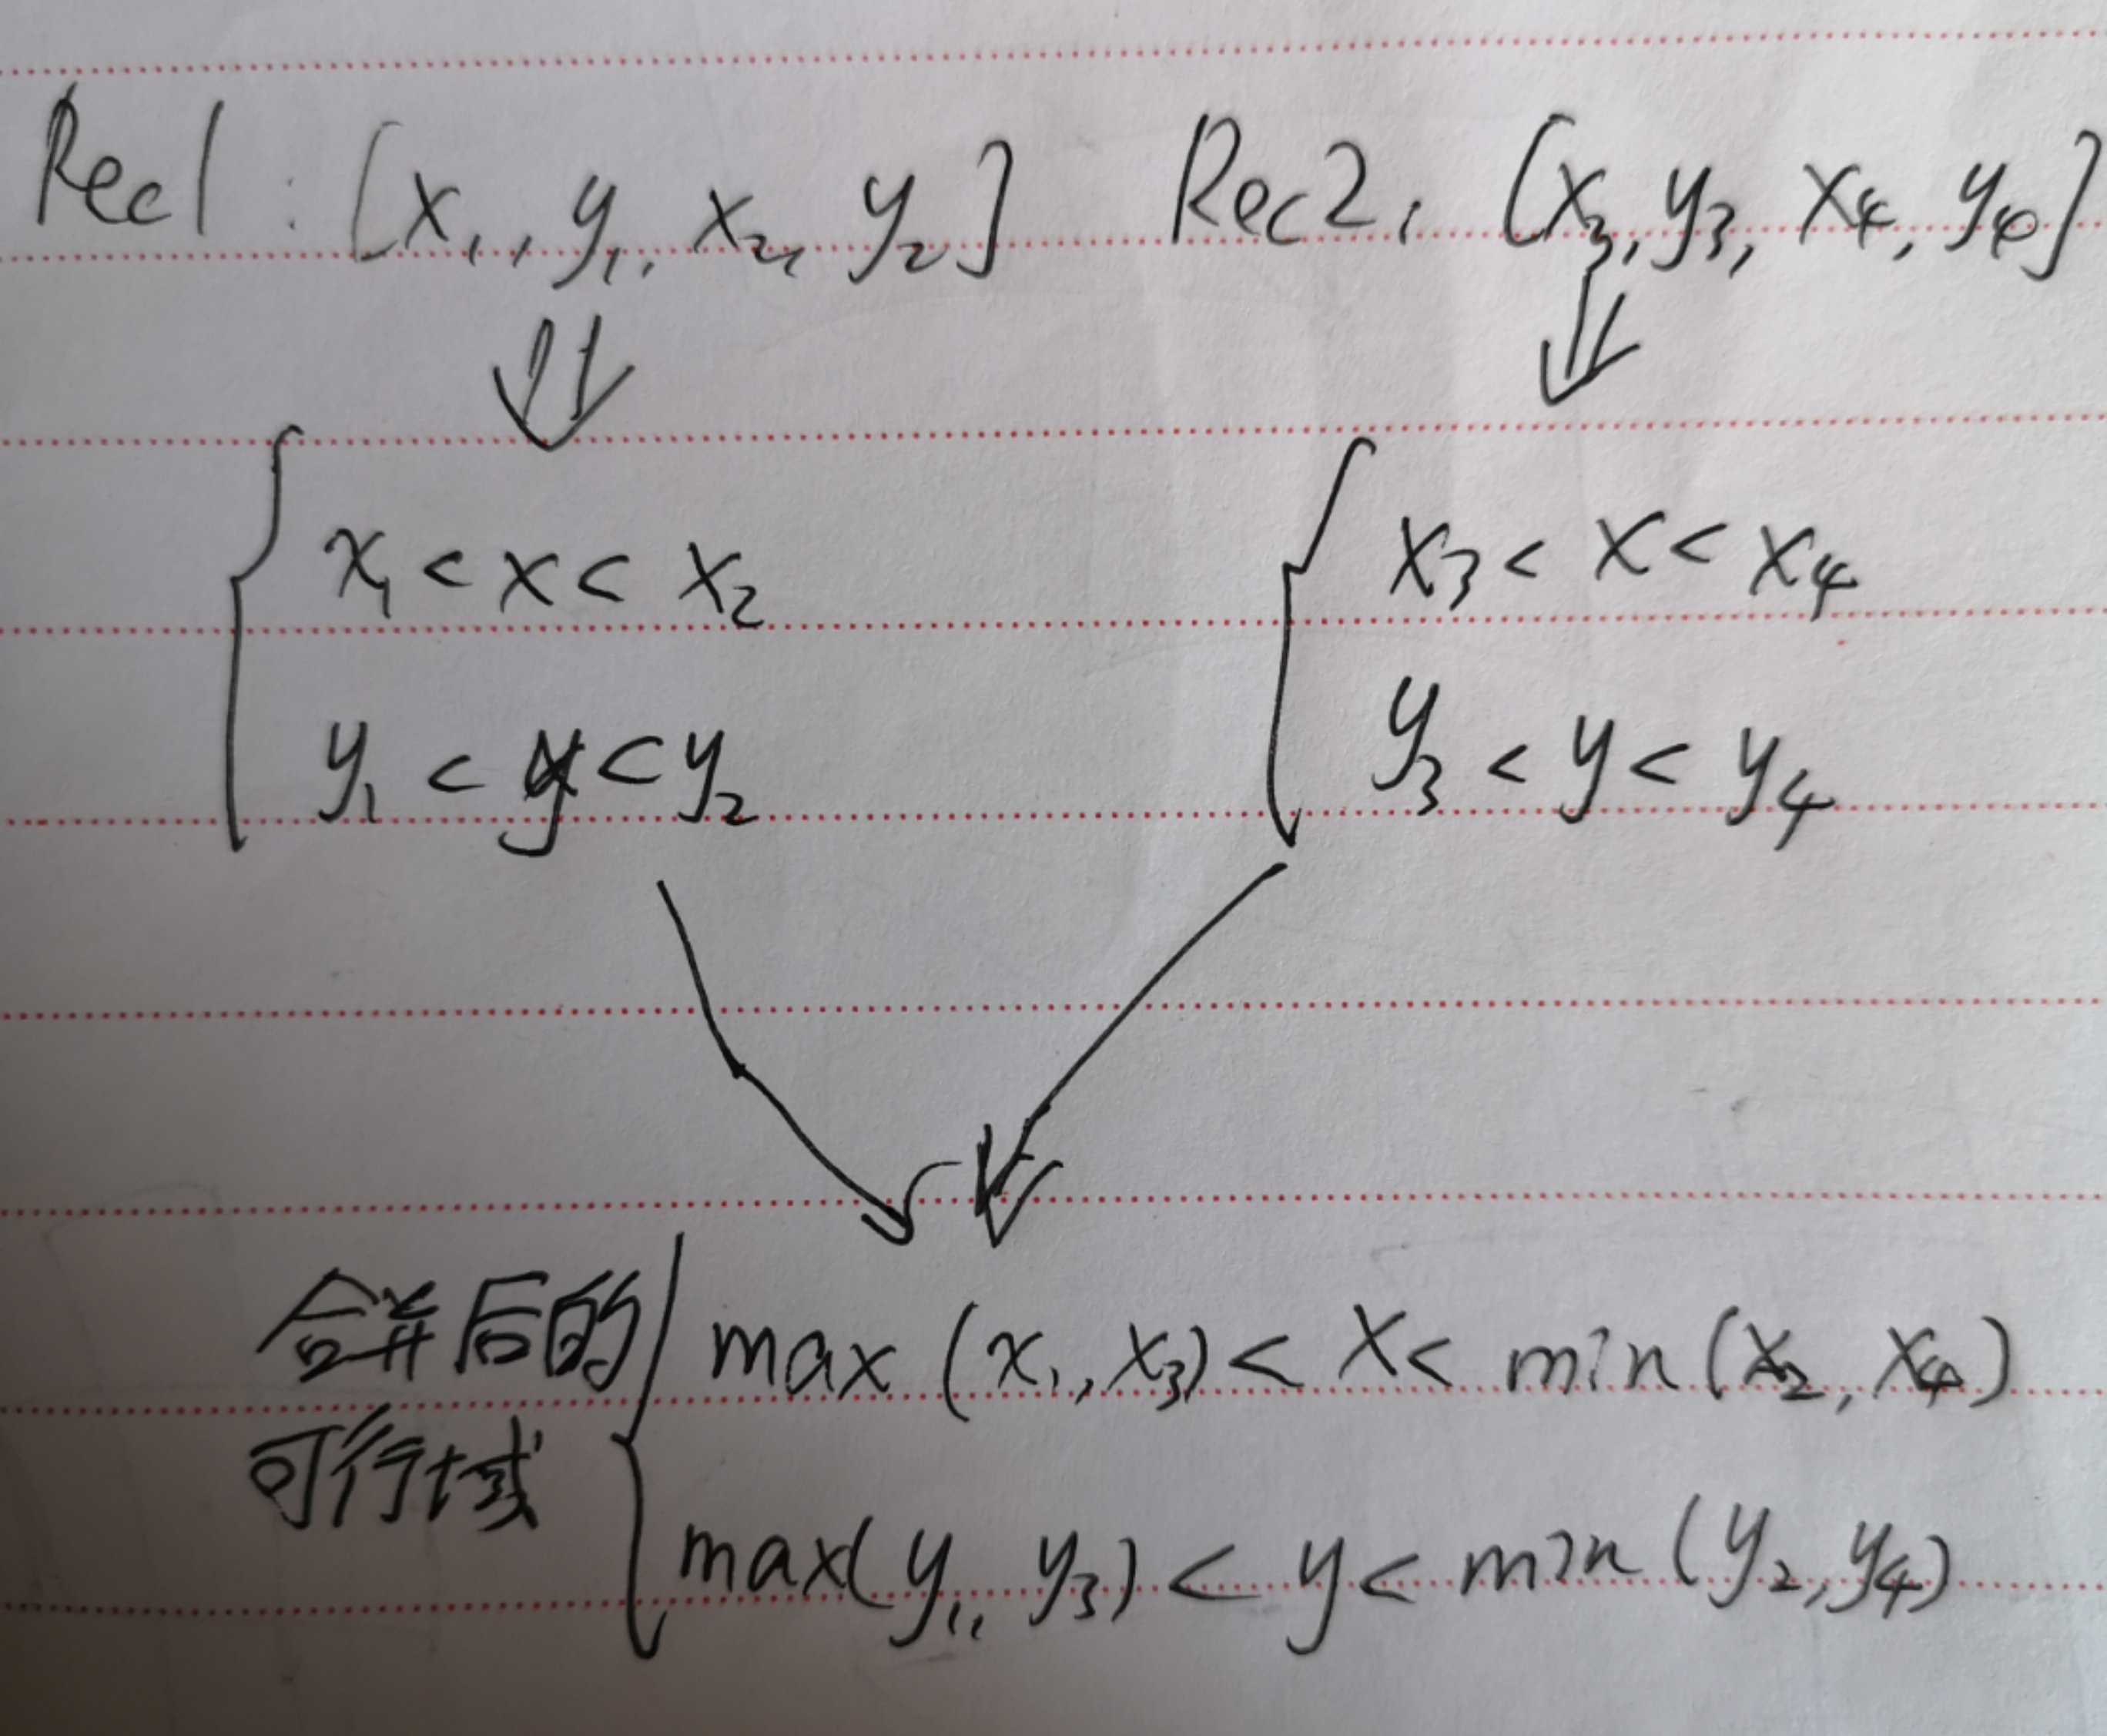 Rec1: [x₁, y₁, x₂, y₂] Rec2: [x₃, y₃, x₄, y₄]
x₁ < x < x₂
y₁ < y < y₂
x₃ < x < x₄
y₃ < y < y₄
合并后的
可行域
max (x₁, x₃) < x < min (x₂, x₄)
max(y₁, y₃) < y < min (y₂, y₄)